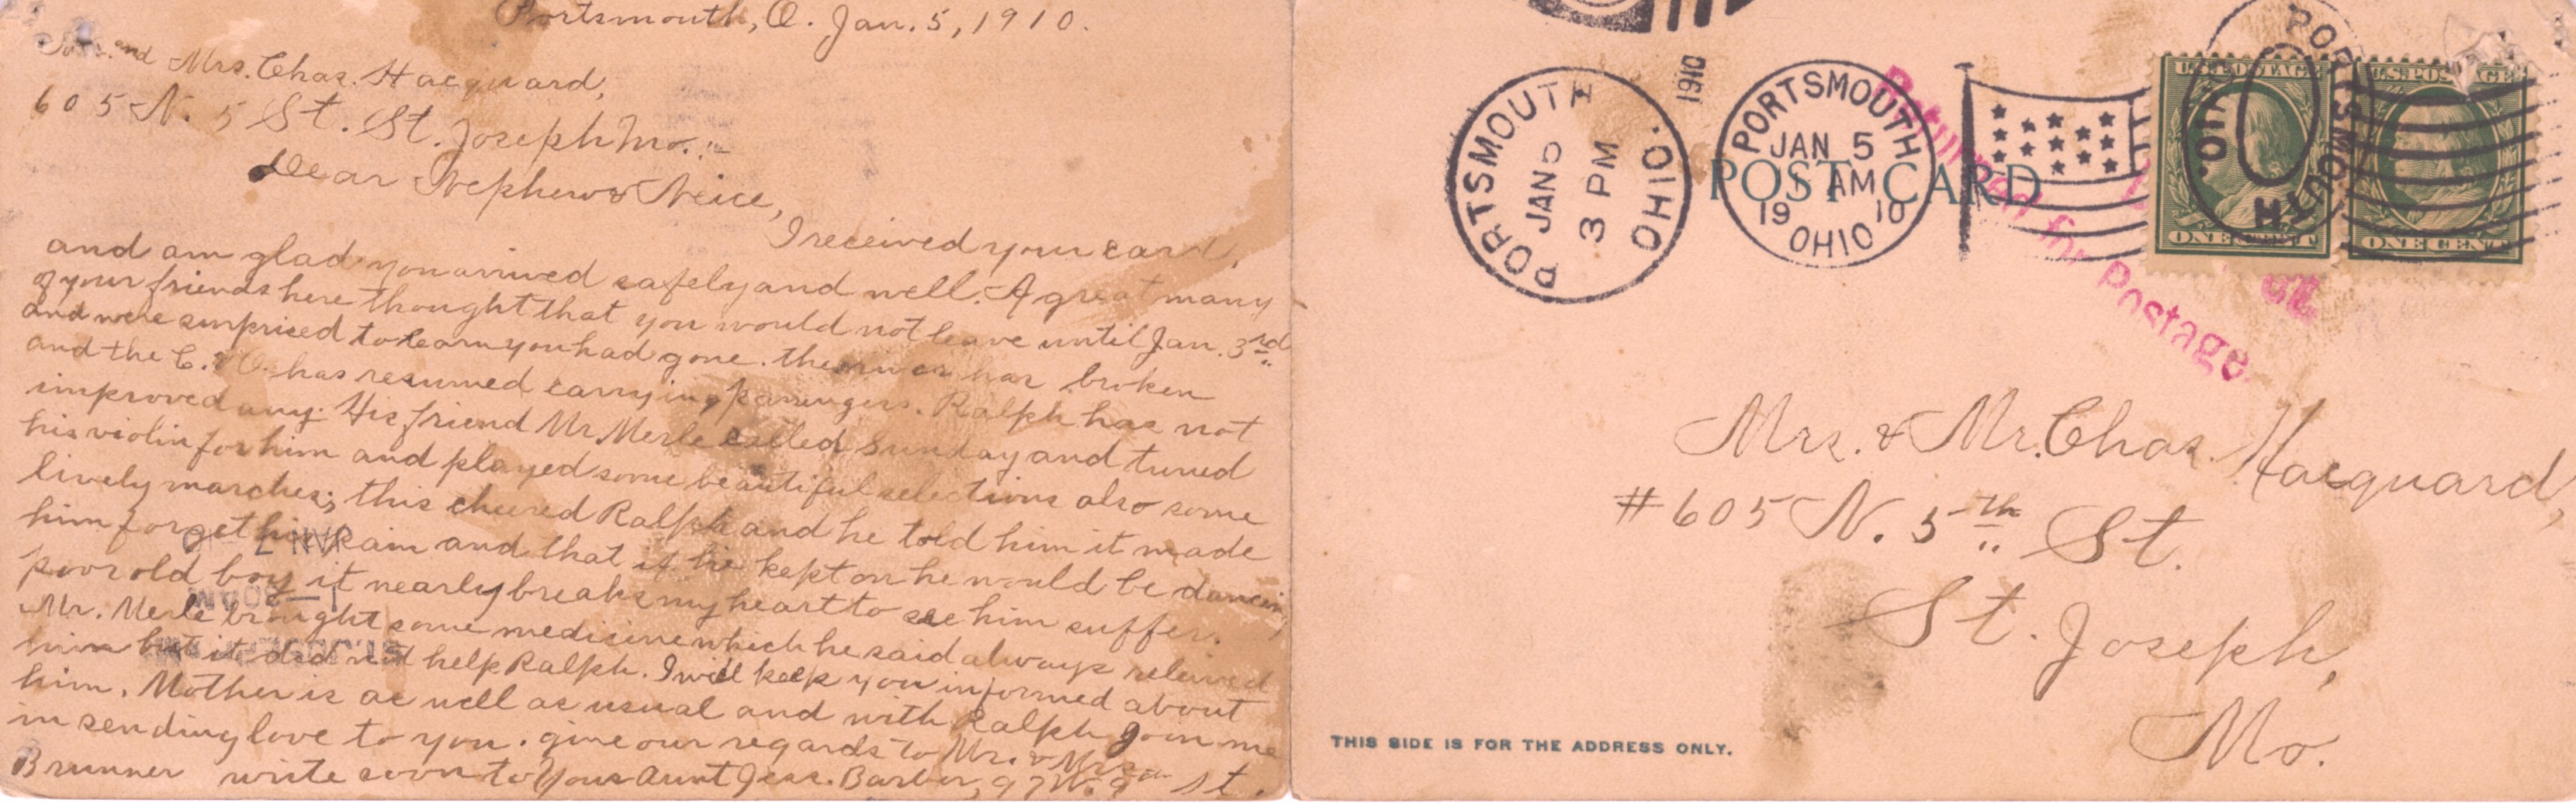 Portsmouth, O. Jan. 5, 1910.
and Mrs. Chas. Hacquard,
605 N. 5 St. St. Joseph Mo.:-
Dear Nephew & Neice,
I received your card,
and am glad you arrived safely and well. A great many
of your friends here thought that you would not leave until Jan. 3rd
and were surprised to learn you had gone. the river has broken
and the C. & O. has resumed carrying passengers. Ralph has not
improved any. His friend Mr. Merle called Sunday and tuned
his violin for him and played some beautiful selections also some
lively marches; this cheered Ralph and he told him it made
him forget his pain and that if he kept on he would be dancing,
poor old boy it nearly breaks my heart to see him suffer.
Mr. Merle brought some medicine which he said always relieved
him but it did not help Ralph. I will keep you informed about
him. Mother is as well as usual and with Ralph join me
in sending love to you. give our regards to Mr. & Mrs.
Brunner write soon to Your Aunt Jess. Barber, 97 W. 9th St.
JAN 7
1-30AM
1910
PORTSMOUTH OHIO.
JAN 5
3 PM
PORTSMOUTH
JAN 5
AM
19 10
OHIO
PORTSMOUTH OHIO.
POST CARD
Returned for Postage
U.S. POSTAGE
ONE CENT
U.S. POSTAGE
ONE CENT
Mrs. & Mr. Chas. Hacquard,
#605 N. 5th St.
St. Joseph,
Mo.
THIS SIDE IS FOR THE ADDRESS ONLY.